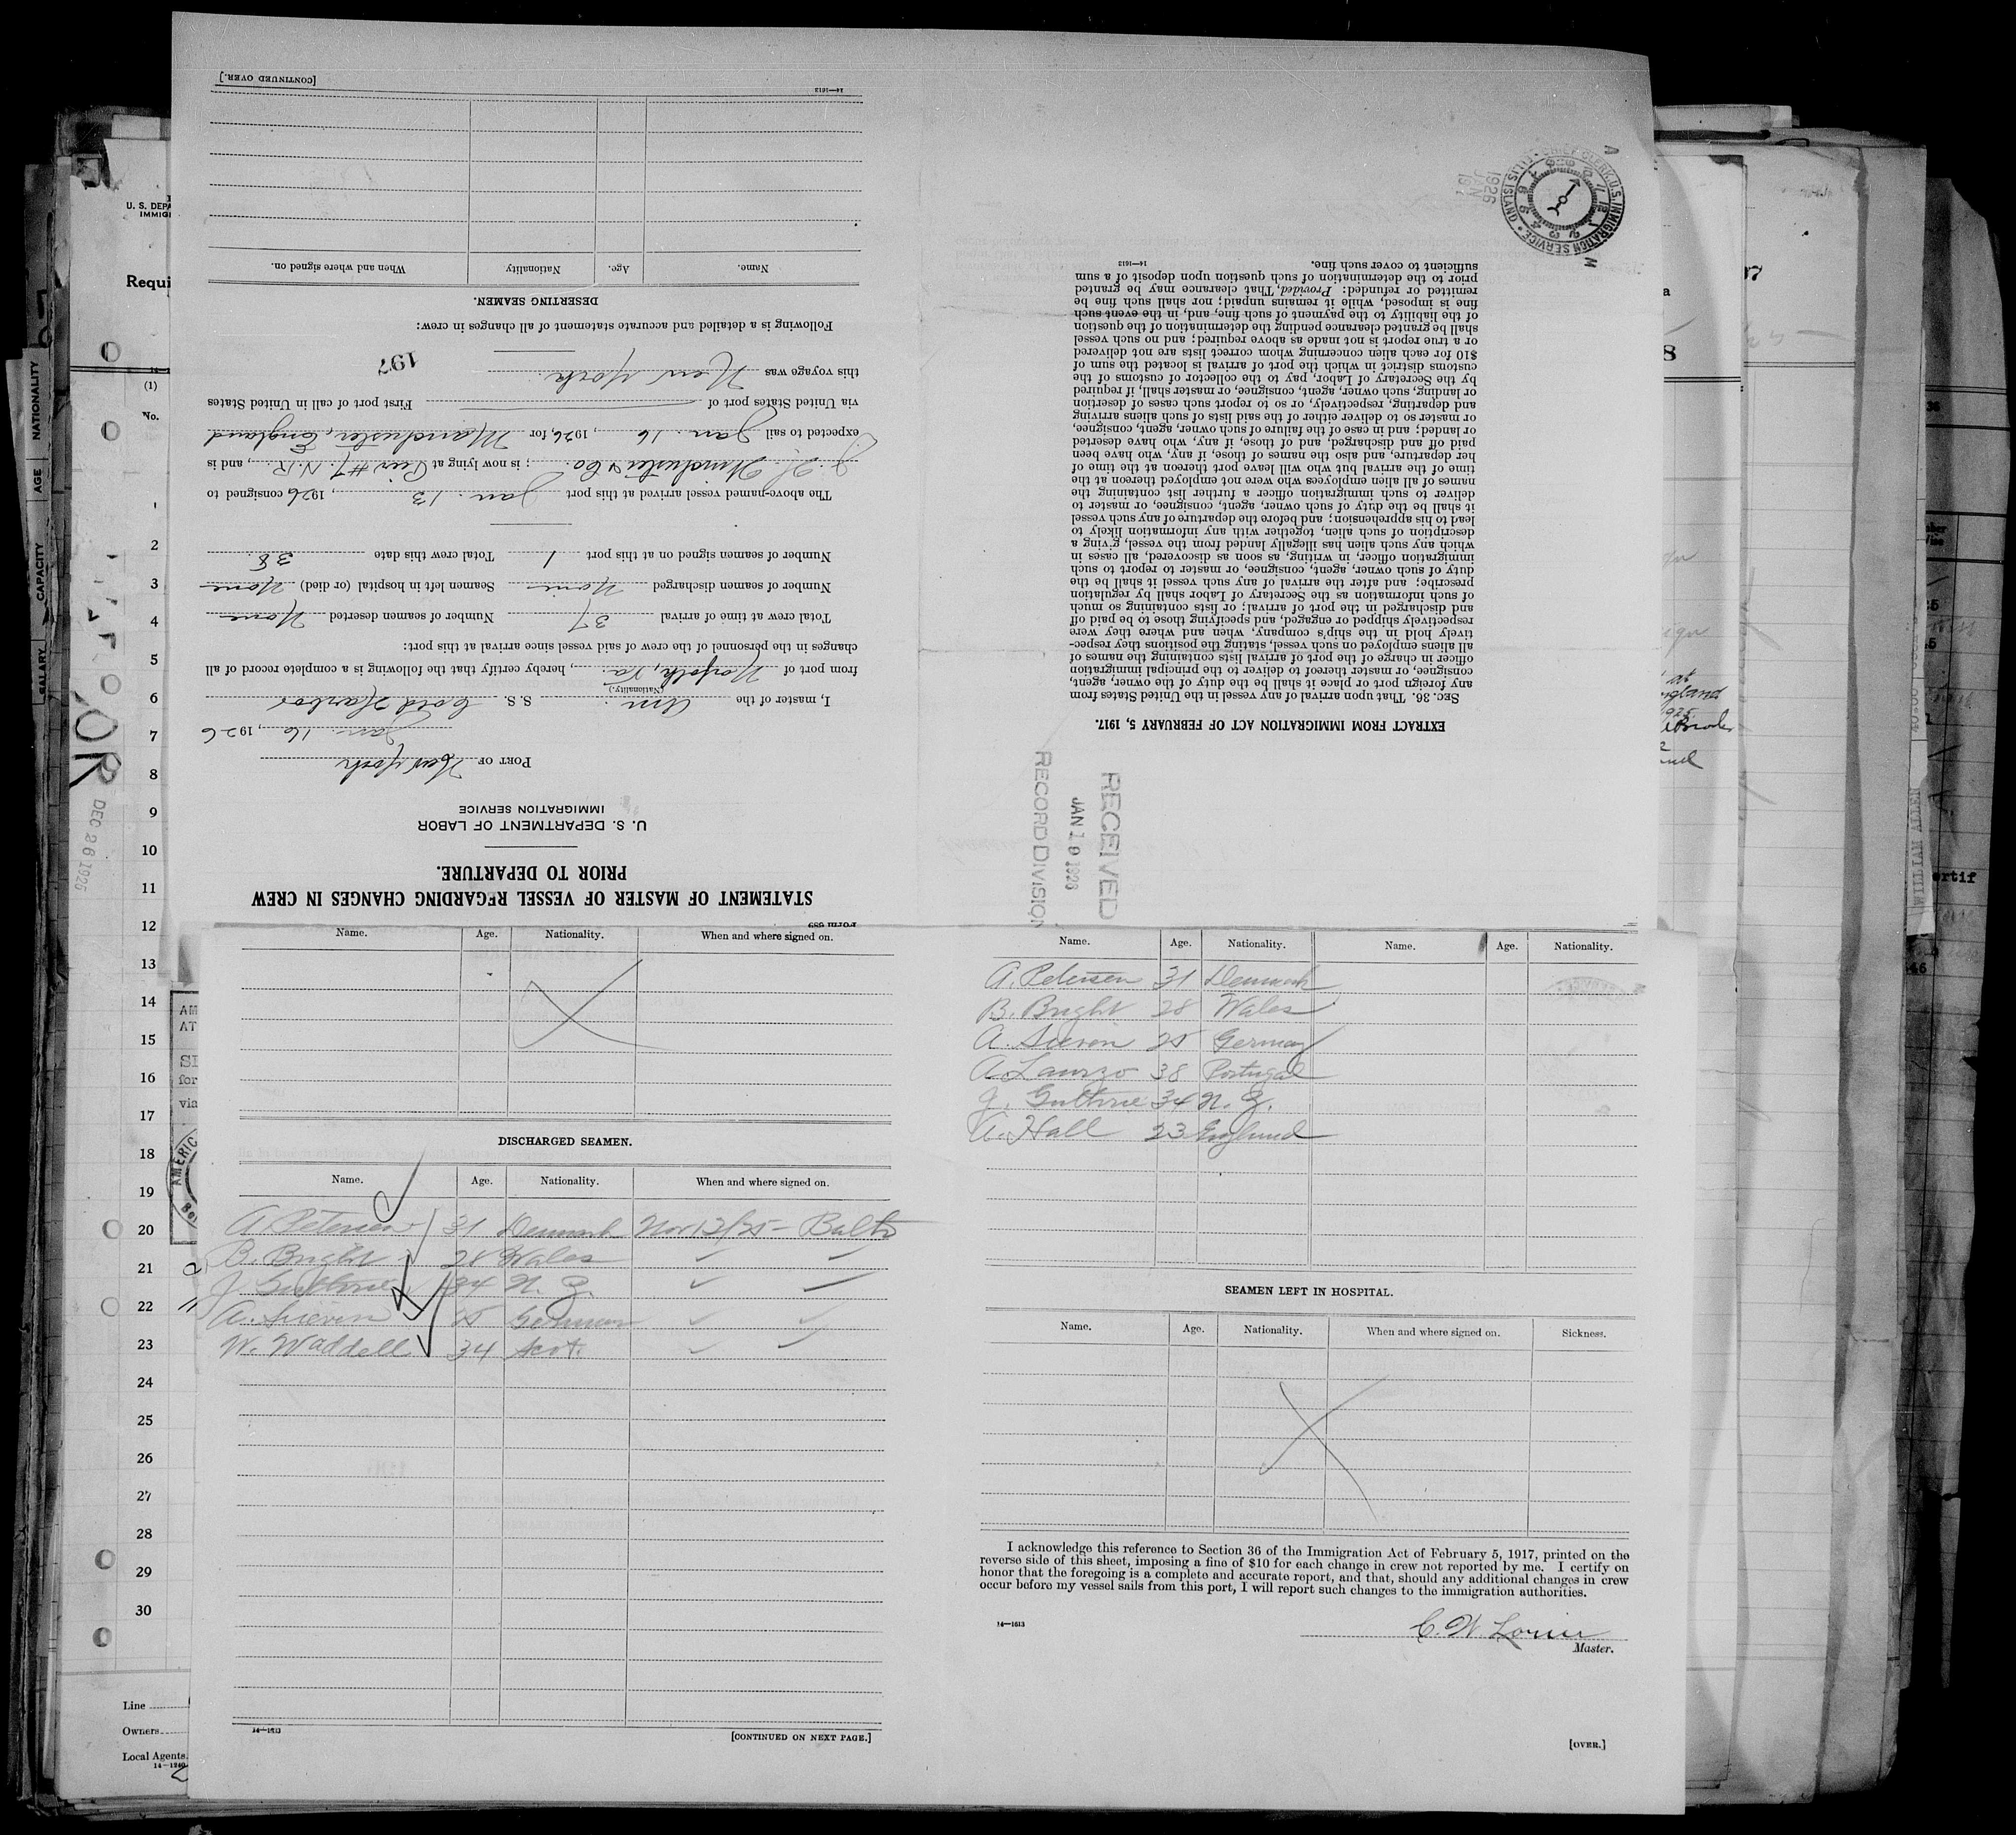 Form 689
STATEMENT OF MASTER OF VESSEL REGARDING CHANGES IN CREW
PRIOR TO DEPARTURE.
U. S. DEPARTMENT OF LABOR
IMMIGRATION SERVICE
PORT OF New York
Jan. 16, 1926
I, master of the Am. S. S. Cold Harbor
(Nationality.)
from port of Norfolk, Va., hereby certify that the following is a complete record of all
changes in the personnel of the crew of said vessel since arrival at this port:
Total crew at time of arrival 37 Number of seamen deserted None
Number of seamen discharged None Seamen left in hospital (or died) None
Number of seamen signed on at this port 1 Total crew this date 38.
The above-named vessel arrived at this port Jan. 13, 1926 consigned to
J. H. Winchester & Co.; is now lying at Pier #7. N. R., and is
expected to sail Jan. 16, 1926, for Manchester, England
via United States port of First port of call in United States
this voyage was New York
197
Following is a detailed and accurate statement of all changes in crew:
DESERTING SEAMEN.
Name. Age. Nationality. When and where signed on.
14—1613
[CONTINUED OVER.]
RECEIVED
JAN 19 1926
RECORD DIVISION
EXTRACT FROM IMMIGRATION ACT OF FEBRUARY 5, 1917.
SEC. 36. That upon arrival of any vessel in the United States from
any foreign port or place it shall be the duty of the owner, agent,
consignee, or master thereof to deliver to the principal immigration
officer in charge of the port of arrival lists containing the names of
all aliens employed on such vessel, stating the positions they respec-
tively hold in the ship's company, when and where they were
respectively shipped or engaged, and specifying those to be paid off
and discharged in the port of arrival; or lists containing so much
of such information as the Secretary of Labor shall by regulation
prescribe; and after the arrival of any such vessel it shall be the
duty of such owner, agent, consignee, or master to report to such
immigration officer, in writing, as soon as discovered, all cases in
which any such alien has illegally landed from the vessel, giving a
description of such alien, together with any information likely to
lead to his apprehension; and before the departure of any such vessel
it shall be the duty of such owner, agent, consignee, or master to
deliver to such immigration officer a further list containing the
names of all alien employees who were not employed thereon at the
time of the arrival but who will leave port thereon at the time of
her departure, and also the names of those, if any, who have been
paid off and discharged, and of those, if any, who have deserted
or landed; and in case of the failure of such owner, agent, consignee,
or master so to deliver either of the said lists of such aliens arriving
and departing, respectively, or so to report such cases of desertion
or landing, such owner, agent, consignee, or master shall, if required
by the Secretary of Labor, pay to the collector of customs of the
customs district in which the port of arrival is located the sum of
$10 for each alien concerning whom correct lists are not delivered
or a true report is not made as above required; and no such vessel
shall be granted clearance pending the determination of the question
of the liability to the payment of such fine, and, in the event such
fine is imposed, while it remains unpaid; nor shall such fine be
remitted or refunded: Provided, That clearance may be granted
prior to the determination of such question upon deposit of a sum
sufficient to cover such fine.
14—1613
CHIEF CLERK, U.S. IMMIGRATION SERVICE • ELLIS ISLAND •
1926
JAN
Name. Age. Nationality. When and where signed on.
DISCHARGED SEAMEN.
Name. Age. Nationality. When and where signed on.
A. Petersen 31 Denmark Nov 12/25 - Balto
B. Bright 28 Wales
J. Guthrie 34 N. Z.
A. Sieven 25 German
W. Waddell 34 Scot.
14—1613
[CONTINUED ON NEXT PAGE.]
Name. Age. Nationality. Name. Age. Nationality.
A. Petersen 31 Denmark
B. Bright 28 Wales
A. Sieven 25 Germany
A Laurzo 38 Portugal
J. Guthrie 34 N. Z.
A. Hall 23 England
SEAMEN LEFT IN HOSPITAL.
Name. Age. Nationality. When and where signed on. Sickness.
I acknowledge this reference to Section 36 of the Immigration Act of February 5, 1917, printed on the
reverse side of this sheet, imposing a fine of $10 for each change in crew not reported by me. I certify on
honor that the foregoing is a complete and accurate report, and that, should any additional changes in crew
occur before my vessel sails from this port, I will report such changes to the immigration authorities.
14—1613
Master.
[OVER.]
U. S. DEPA
IMMIG
Requi
(1)
No.
1
2
3
4
5
6
7
8
9
10
11
12
13
14
15
16
17
18
19
20
21
22
23
24
25
26
27
28
29
30
Line
Owners
Local Agents
14—1240
NATIONALITY
AGE
CAPACITY
SALARY
DEC 26 1925
AM
AT
for
via
AMERIC
WILLIAM ALLEN
ertif